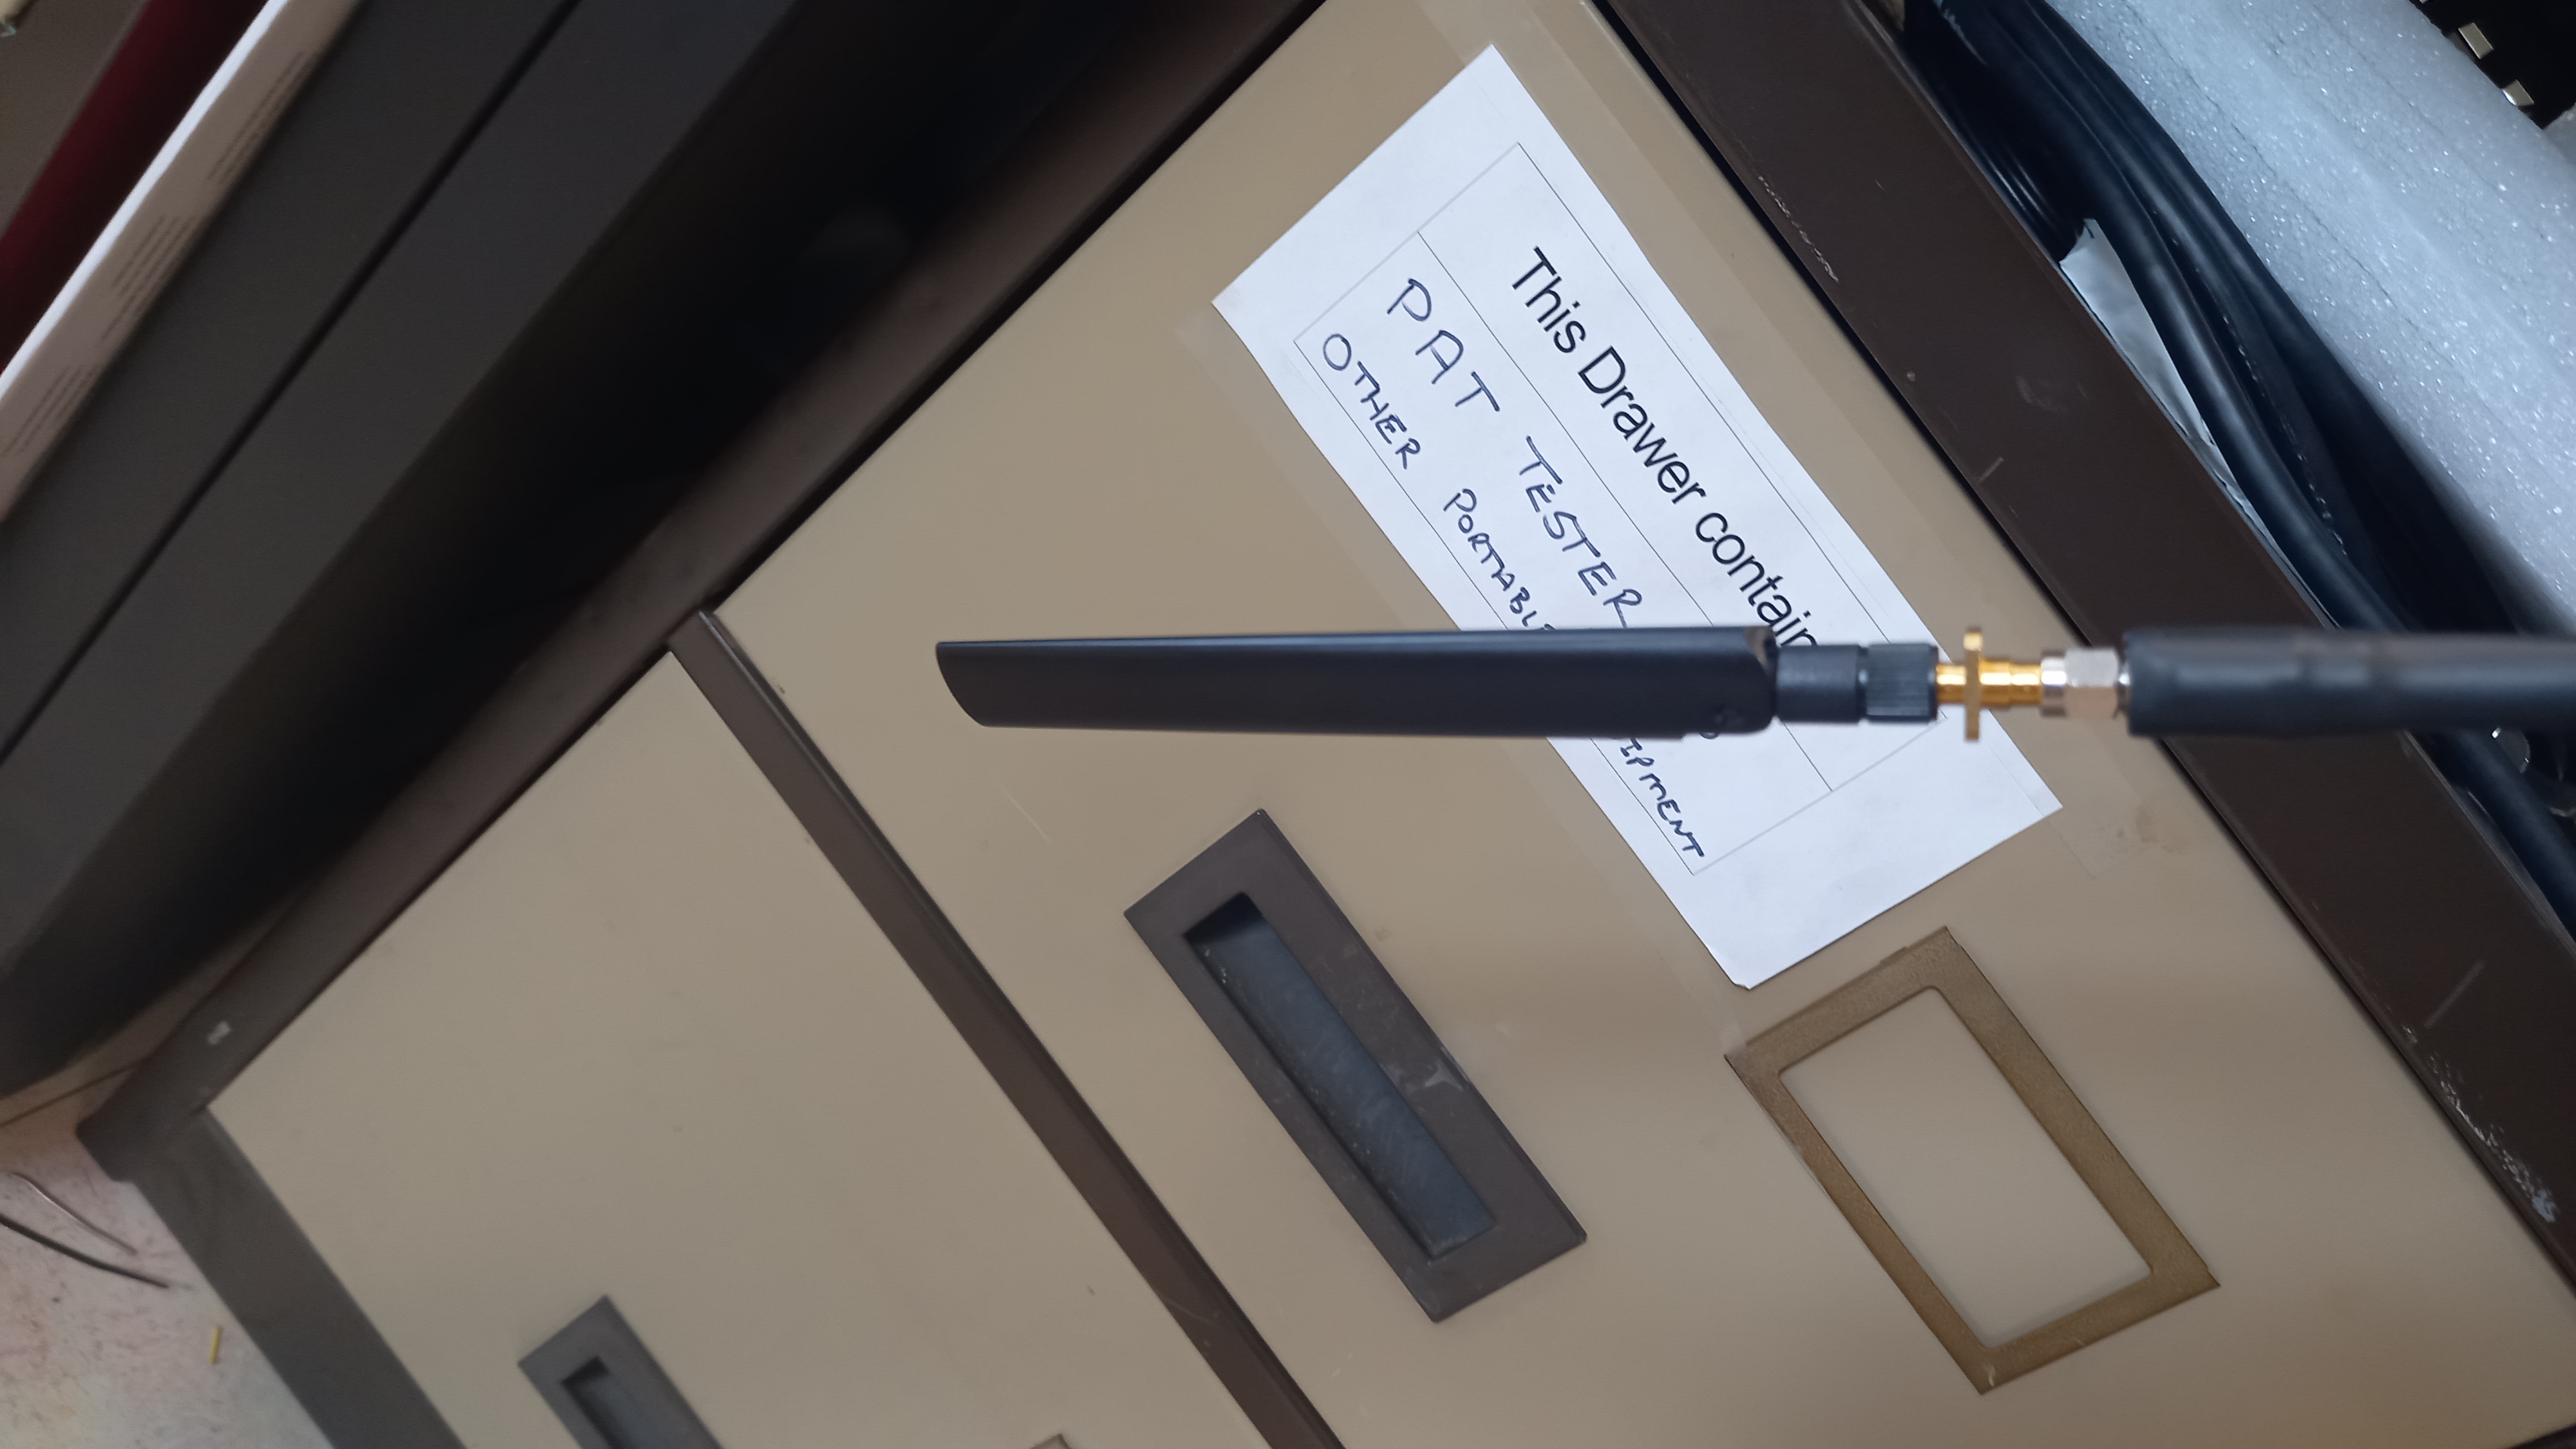 This Drawer contain
PAT TESTER
OTHER PORTABLE IPMENT